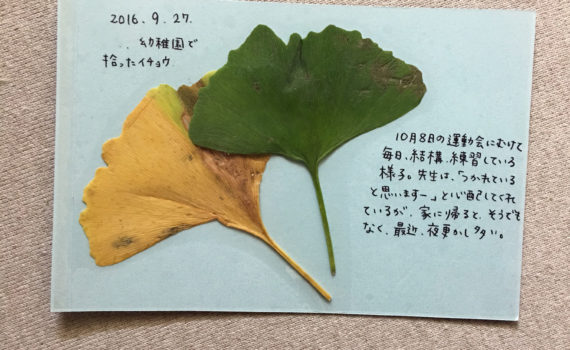 2016.9.27.
幼稚園で
拾ったイチョウ
10月8日の運動会にむけて
毎日、結構、練習している
様子。先生は、「つかれている
と思いますー」と心配してくれ
ているが、家に帰ると、そうでも
なく、最近、夜更かし多い。